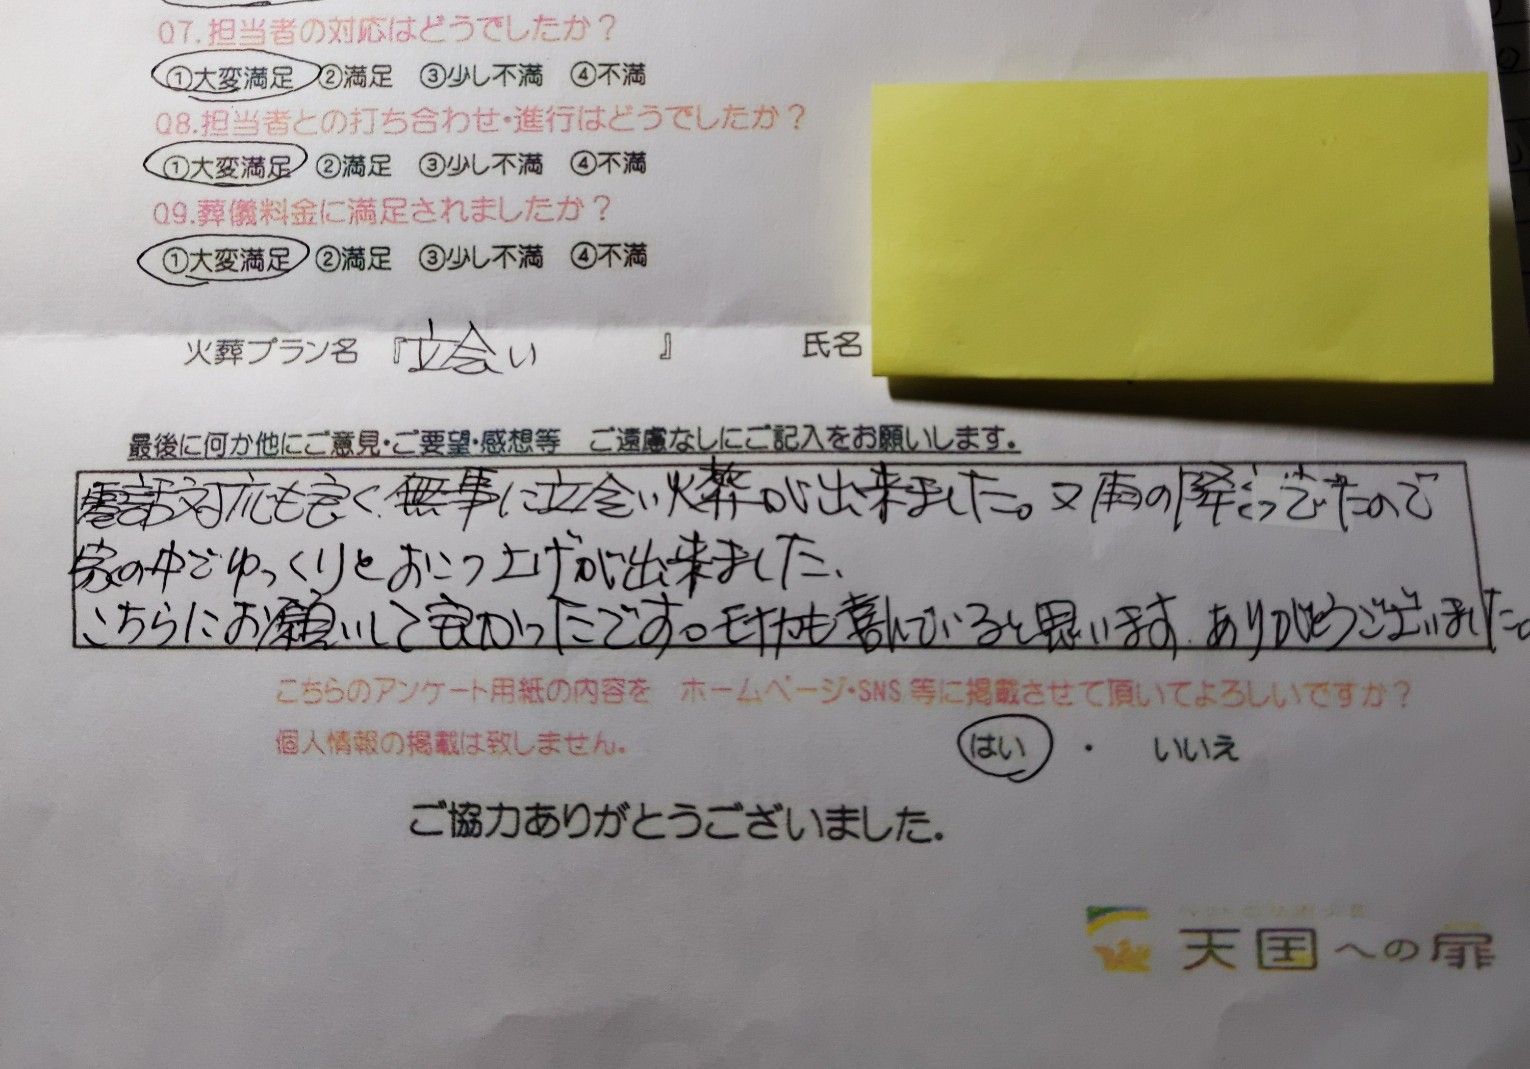 Q7.担当者の対応はどうでしたか？
①大変満足 ②満足 ③少し不満 ④不満
Q8.担当者との打ち合わせ・進行はどうでしたか？
①大変満足 ②満足 ③少し不満 ④不満
Q9.葬儀料金に満足されましたか？
①大変満足 ②満足 ③少し不満 ④不満
火葬プラン名 『立会い 』 氏名
最後に何か他にご意見・ご要望・感想等 ご遠慮なしにご記入をお願いします。
電話対応も良く、無事に立会い火葬が出来ました。又雨の降ってたので
家の中でゆっくりとおこつ上げが出来ました、
こちらにお願いして良かったです。モカも喜んでいると思います、ありがとうございました。
こちらのアンケート用紙の内容を ホームページ・SNS等に掲載させて頂いてよろしいですか？
個人情報の掲載は致しません。 はい ・ いいえ
ご協力ありがとうございました。
天国への扉